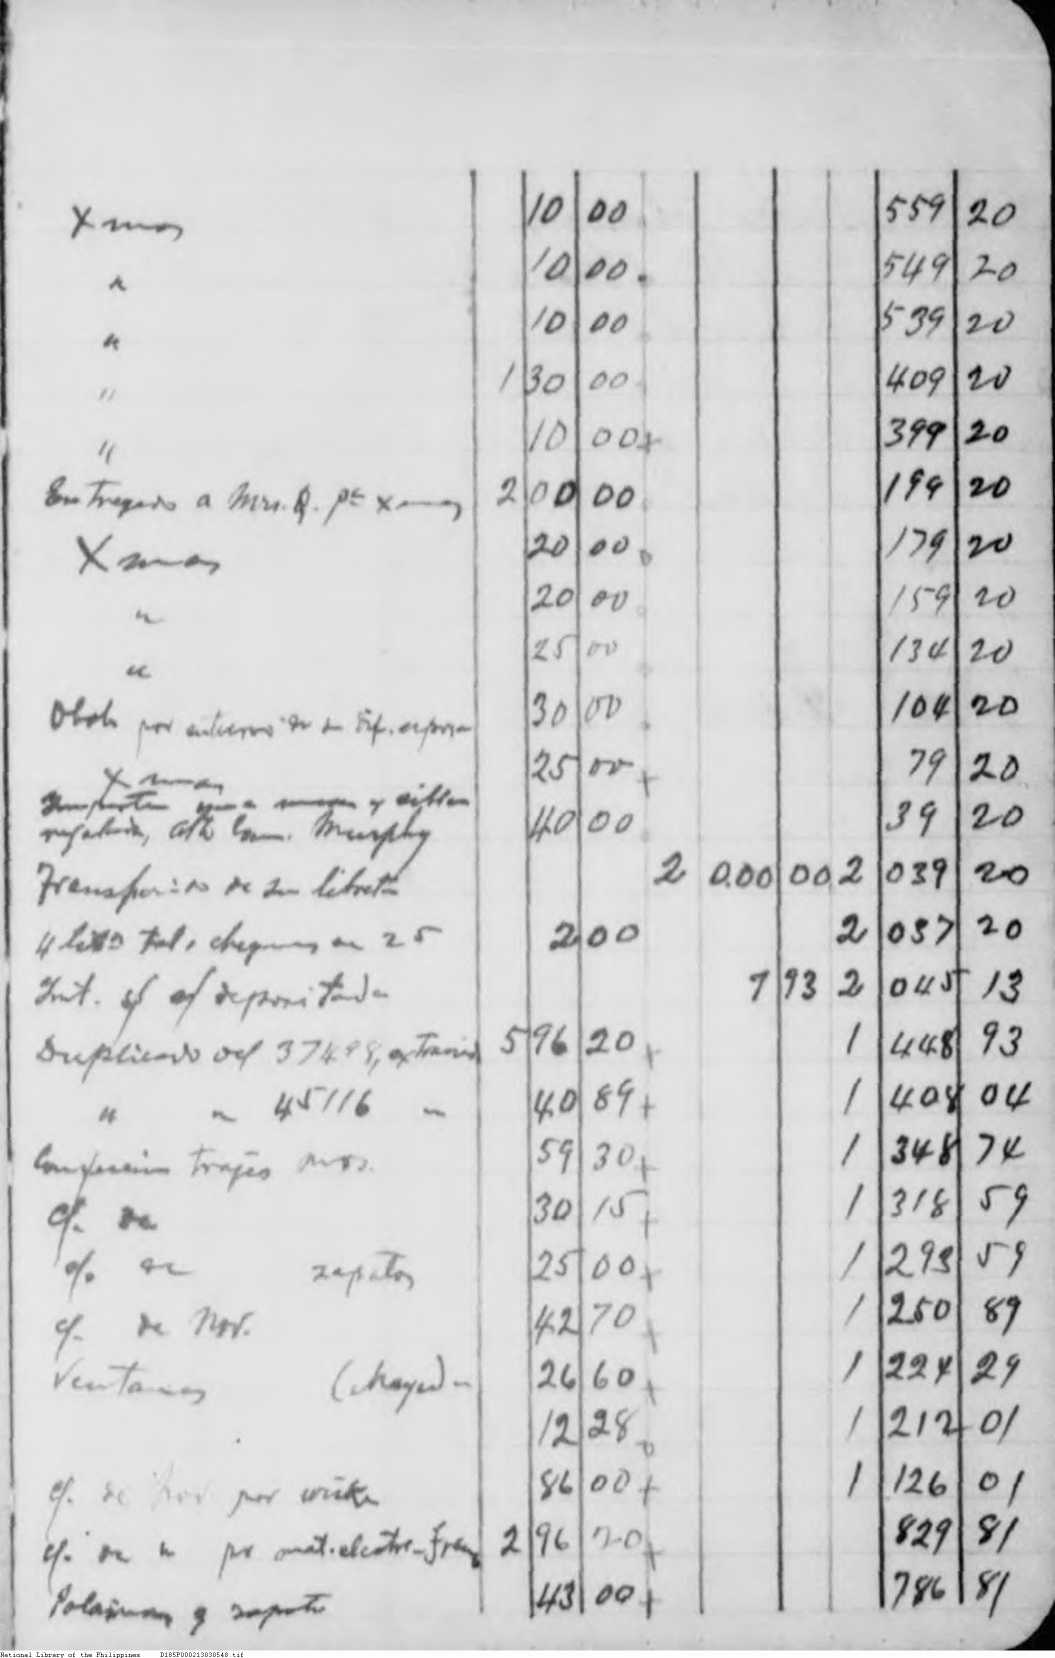 Xmas 10 00 559 20
" 10 00. 549 20
" 10 00 539 20
" 130 00 409 20
" 10 00+ 399 20
Entregado a Mrs. Q. pa Xmas 200 00 199 20
Xmas 20 00. 179 20
" 20 00 159 20
" 25 00 134 20
por entierro de su dif. esposa 30 00 104 20
Xmas 25 00+ 79 20
y sillon
regalada, Murphy 40 00 39 20
de su libreta 2 000 00 2 039 20
4 cheques 25 2 00 2 037 20
Int. depositada 7 93 2 045 13
Duplicado del 37498, 596 20+ 1 448 93
" " 45116 " 40 89+ 1 408 04
trajes 59 30+ 1 348 74
cf. de 30 15+ 1 318 59
cf. de zapatos 25 00+ 1 293 59
cf. de Nov. 42 70+ 1 250 89
Ventanas 26 60+ 1 224 29
12 28 1 212 01
cf. de Nov. por 86 00+ 1 126 01
cf. de " 296 20+ 829 81
Polainas y zapato 43 00+ 786 81
National Library of the Philippines D185P000213038548.tif